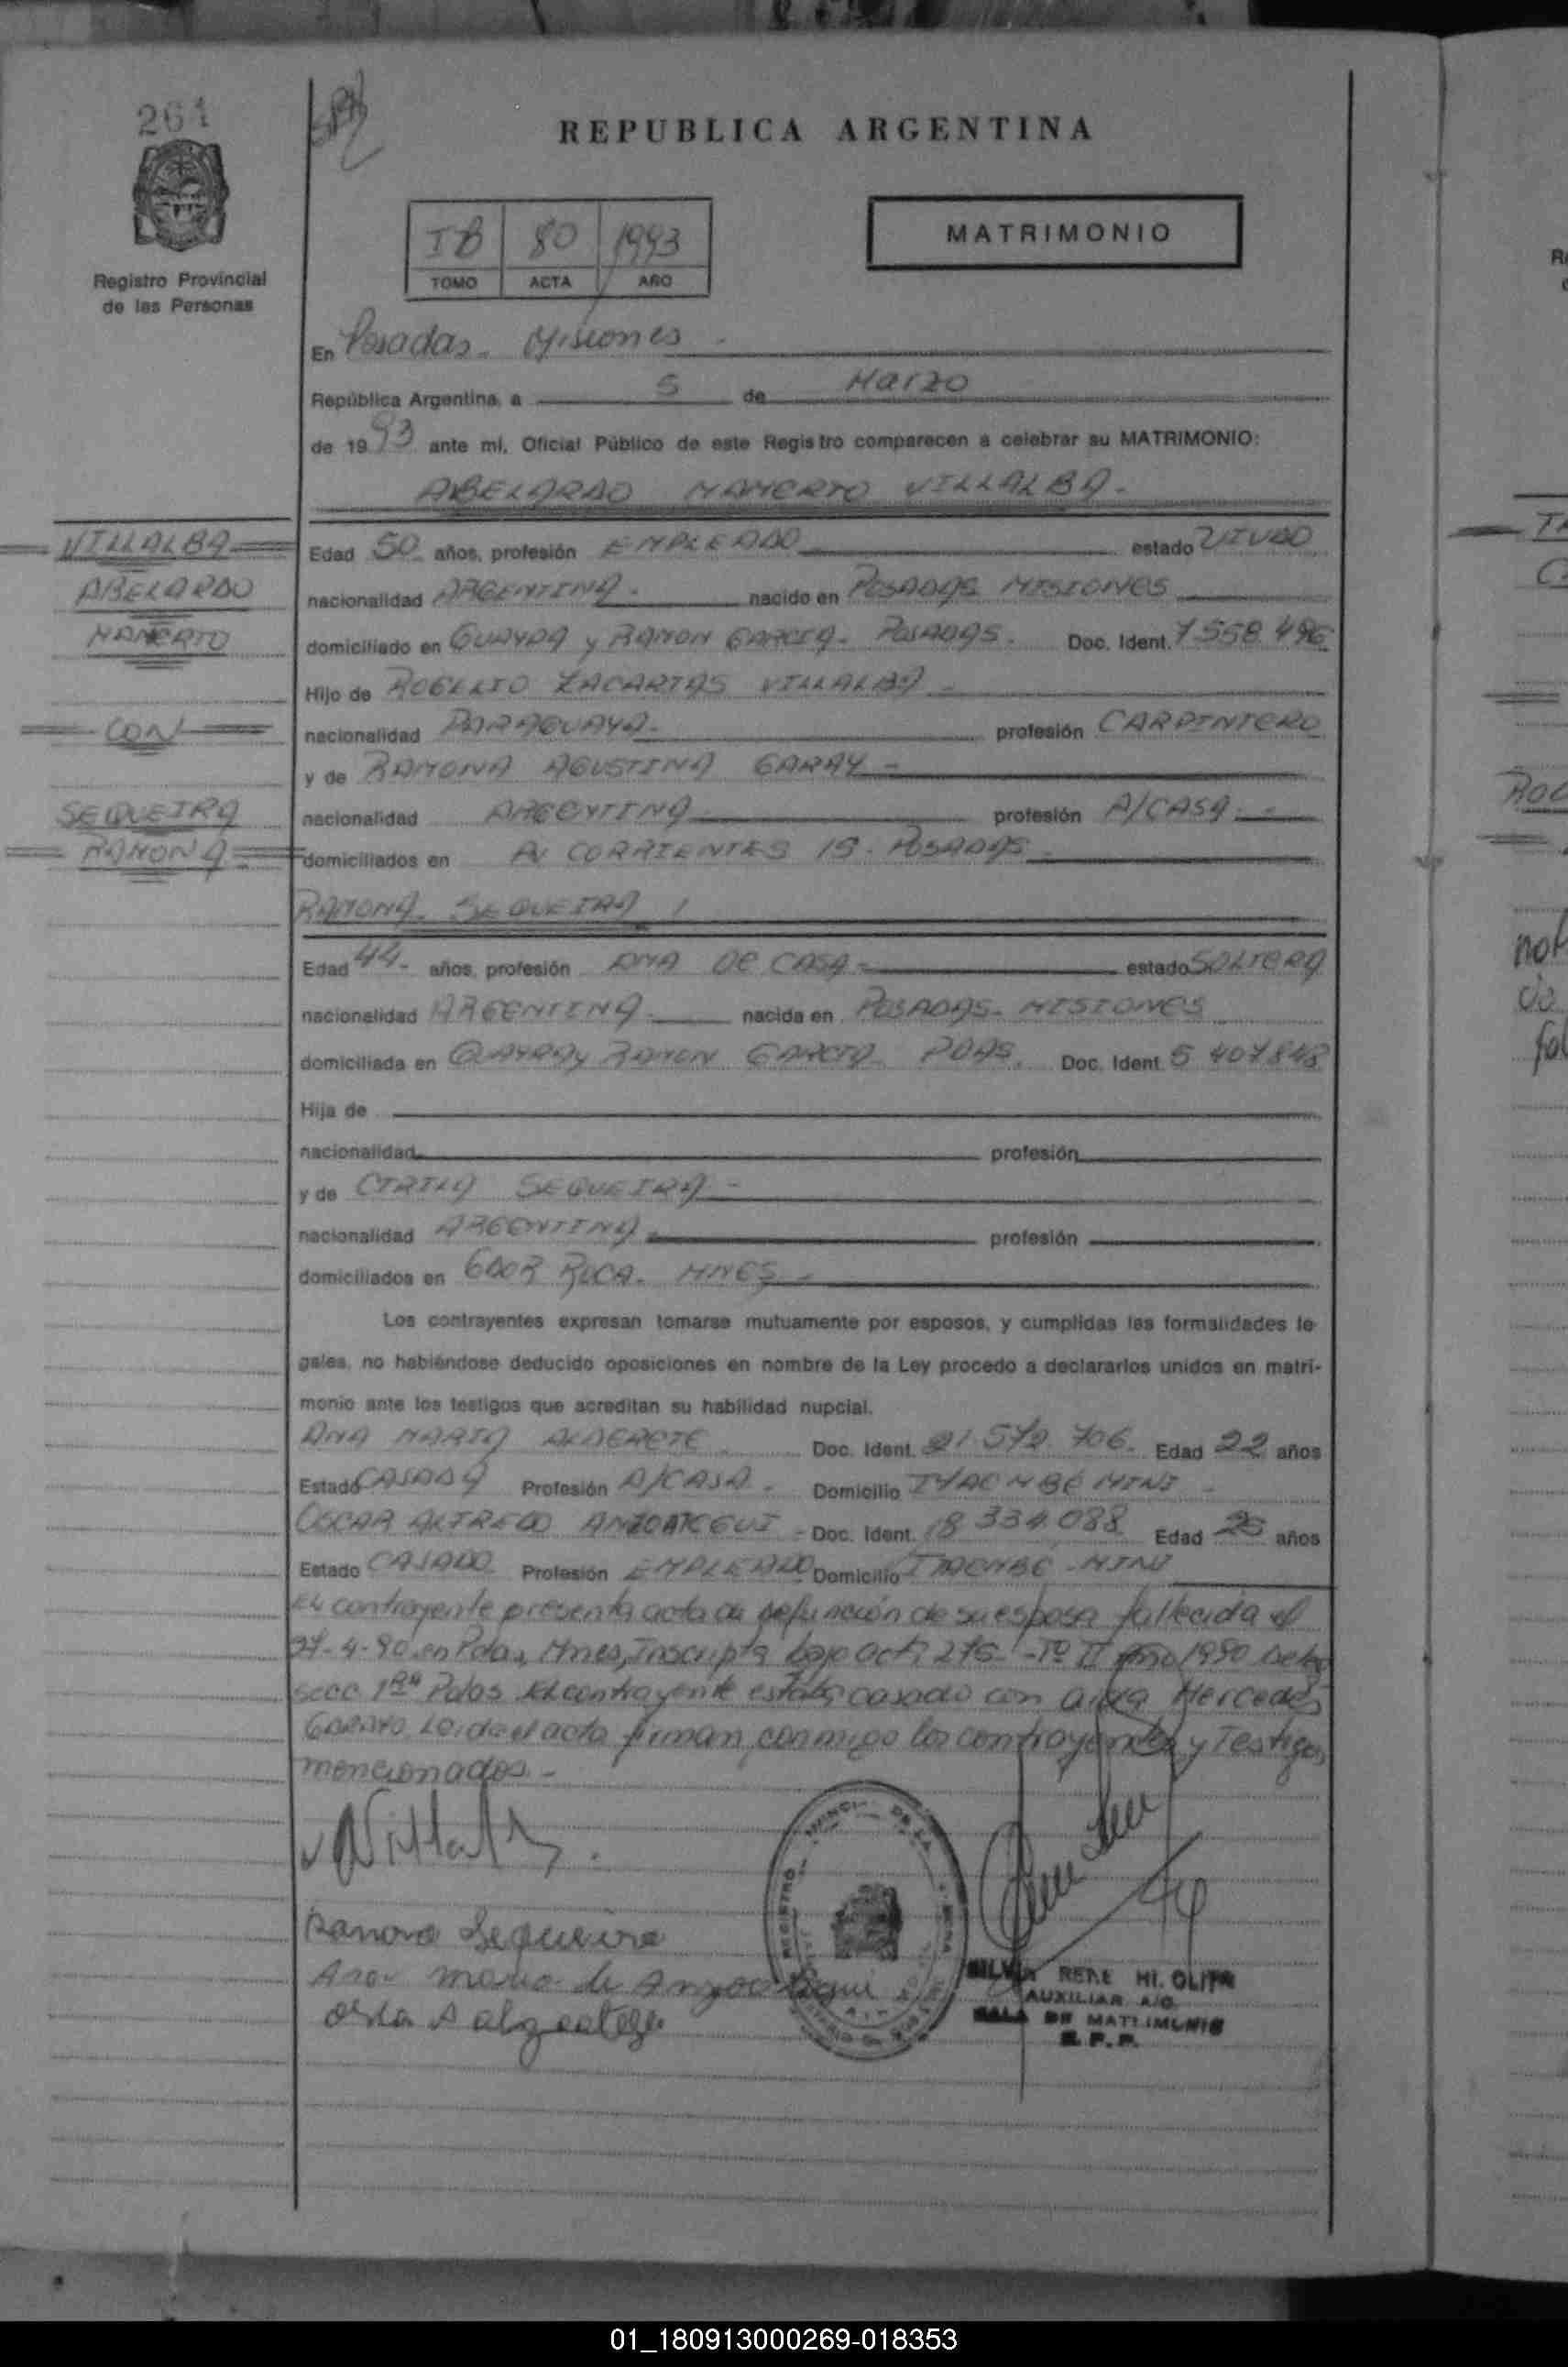 261
REPUBLICA ARGENTINA
Registro Provincial
de las Personas
IB 80 1993
TOMO ACTA AÑO
MATRIMONIO
En Posadas - Misiones
República Argentina, a 5 de Marzo
de 1993 ante mi, Oficial Público de este Registro comparecen a celebrar su MATRIMONIO:
ABELARDO MAMERTO VILLALBA.-
VILLALBA
ABELARDO
MAMERTO
CON
SEQUEIRA
RAMONA
Edad 50 años, profesión EMPLEADO estado VIUDO
nacionalidad ARGENTINA. nacido en POSADAS MISIONES
domiciliado en GUAYRA y RAMON GARCIA - POSADAS. Doc. Ident. 7.558.496
Hijo de ROGELIO ZACARIAS VILLALBA -
nacionalidad PARAGUAYA. profesión CARPINTERO
y de RAMONA AGUSTINA GARAY -
nacionalidad ARGENTINA profesión A/CASA.-
domiciliados en AV CORRIENTES 15 - POSADAS -
RAMONA SEQUEIRA
Edad 44- años, profesión AMA DE CASA - estado SOLTERA
nacionalidad ARGENTINA nacida en POSADAS - MISIONES
domiciliada en GUAYRA y RAMON GARCIA PDAS. Doc. Ident. 5.407.848
Hija de
nacionalidad profesión
y de CIRILA SEQUEIRA -
nacionalidad ARGENTINA profesión
domiciliados en GDOR ROCA - MNES -
Los contrayentes expresan tomarse mutuamente por esposos, y cumplidas las formalidades le-
gales, no habiéndose deducido oposiciones en nombre de la Ley procedo a declararlos unidos en matri-
monio ante los testigos que acreditan su habilidad nupcial.
ANA MARIA ALDERETE Doc. Ident. 21.572.706. Edad 22 años
Estado CASADA Profesión A/CASA. Domicilio ITAEMBÉ MINI -
OSCAR ALFREDO ANZOATEGUI - Doc. Ident. 18.334.088 Edad años
Estado CASADO Profesión EMPLEADO Domicilio ITAEMBÉ - MINI
El contrayente presenta acta de defunción de su esposa fallecida el
27-4-90 en Pdas, Mnes, Inscripta bajo act: 275 - Tº II año 1990 de la
secc 1ra Pdas El contrayente estaba casado con Mercedes
Leida el acta firman conmigo los contrayentes y Testigos
mencionados.-
Villalba
Ramona Sequeira
Ana Maria de Anzoategui
REGISTRO
DE LA
AUXILIAR
SALA DE MATRIMONIO
R.P.P.
01_180913000269-018353